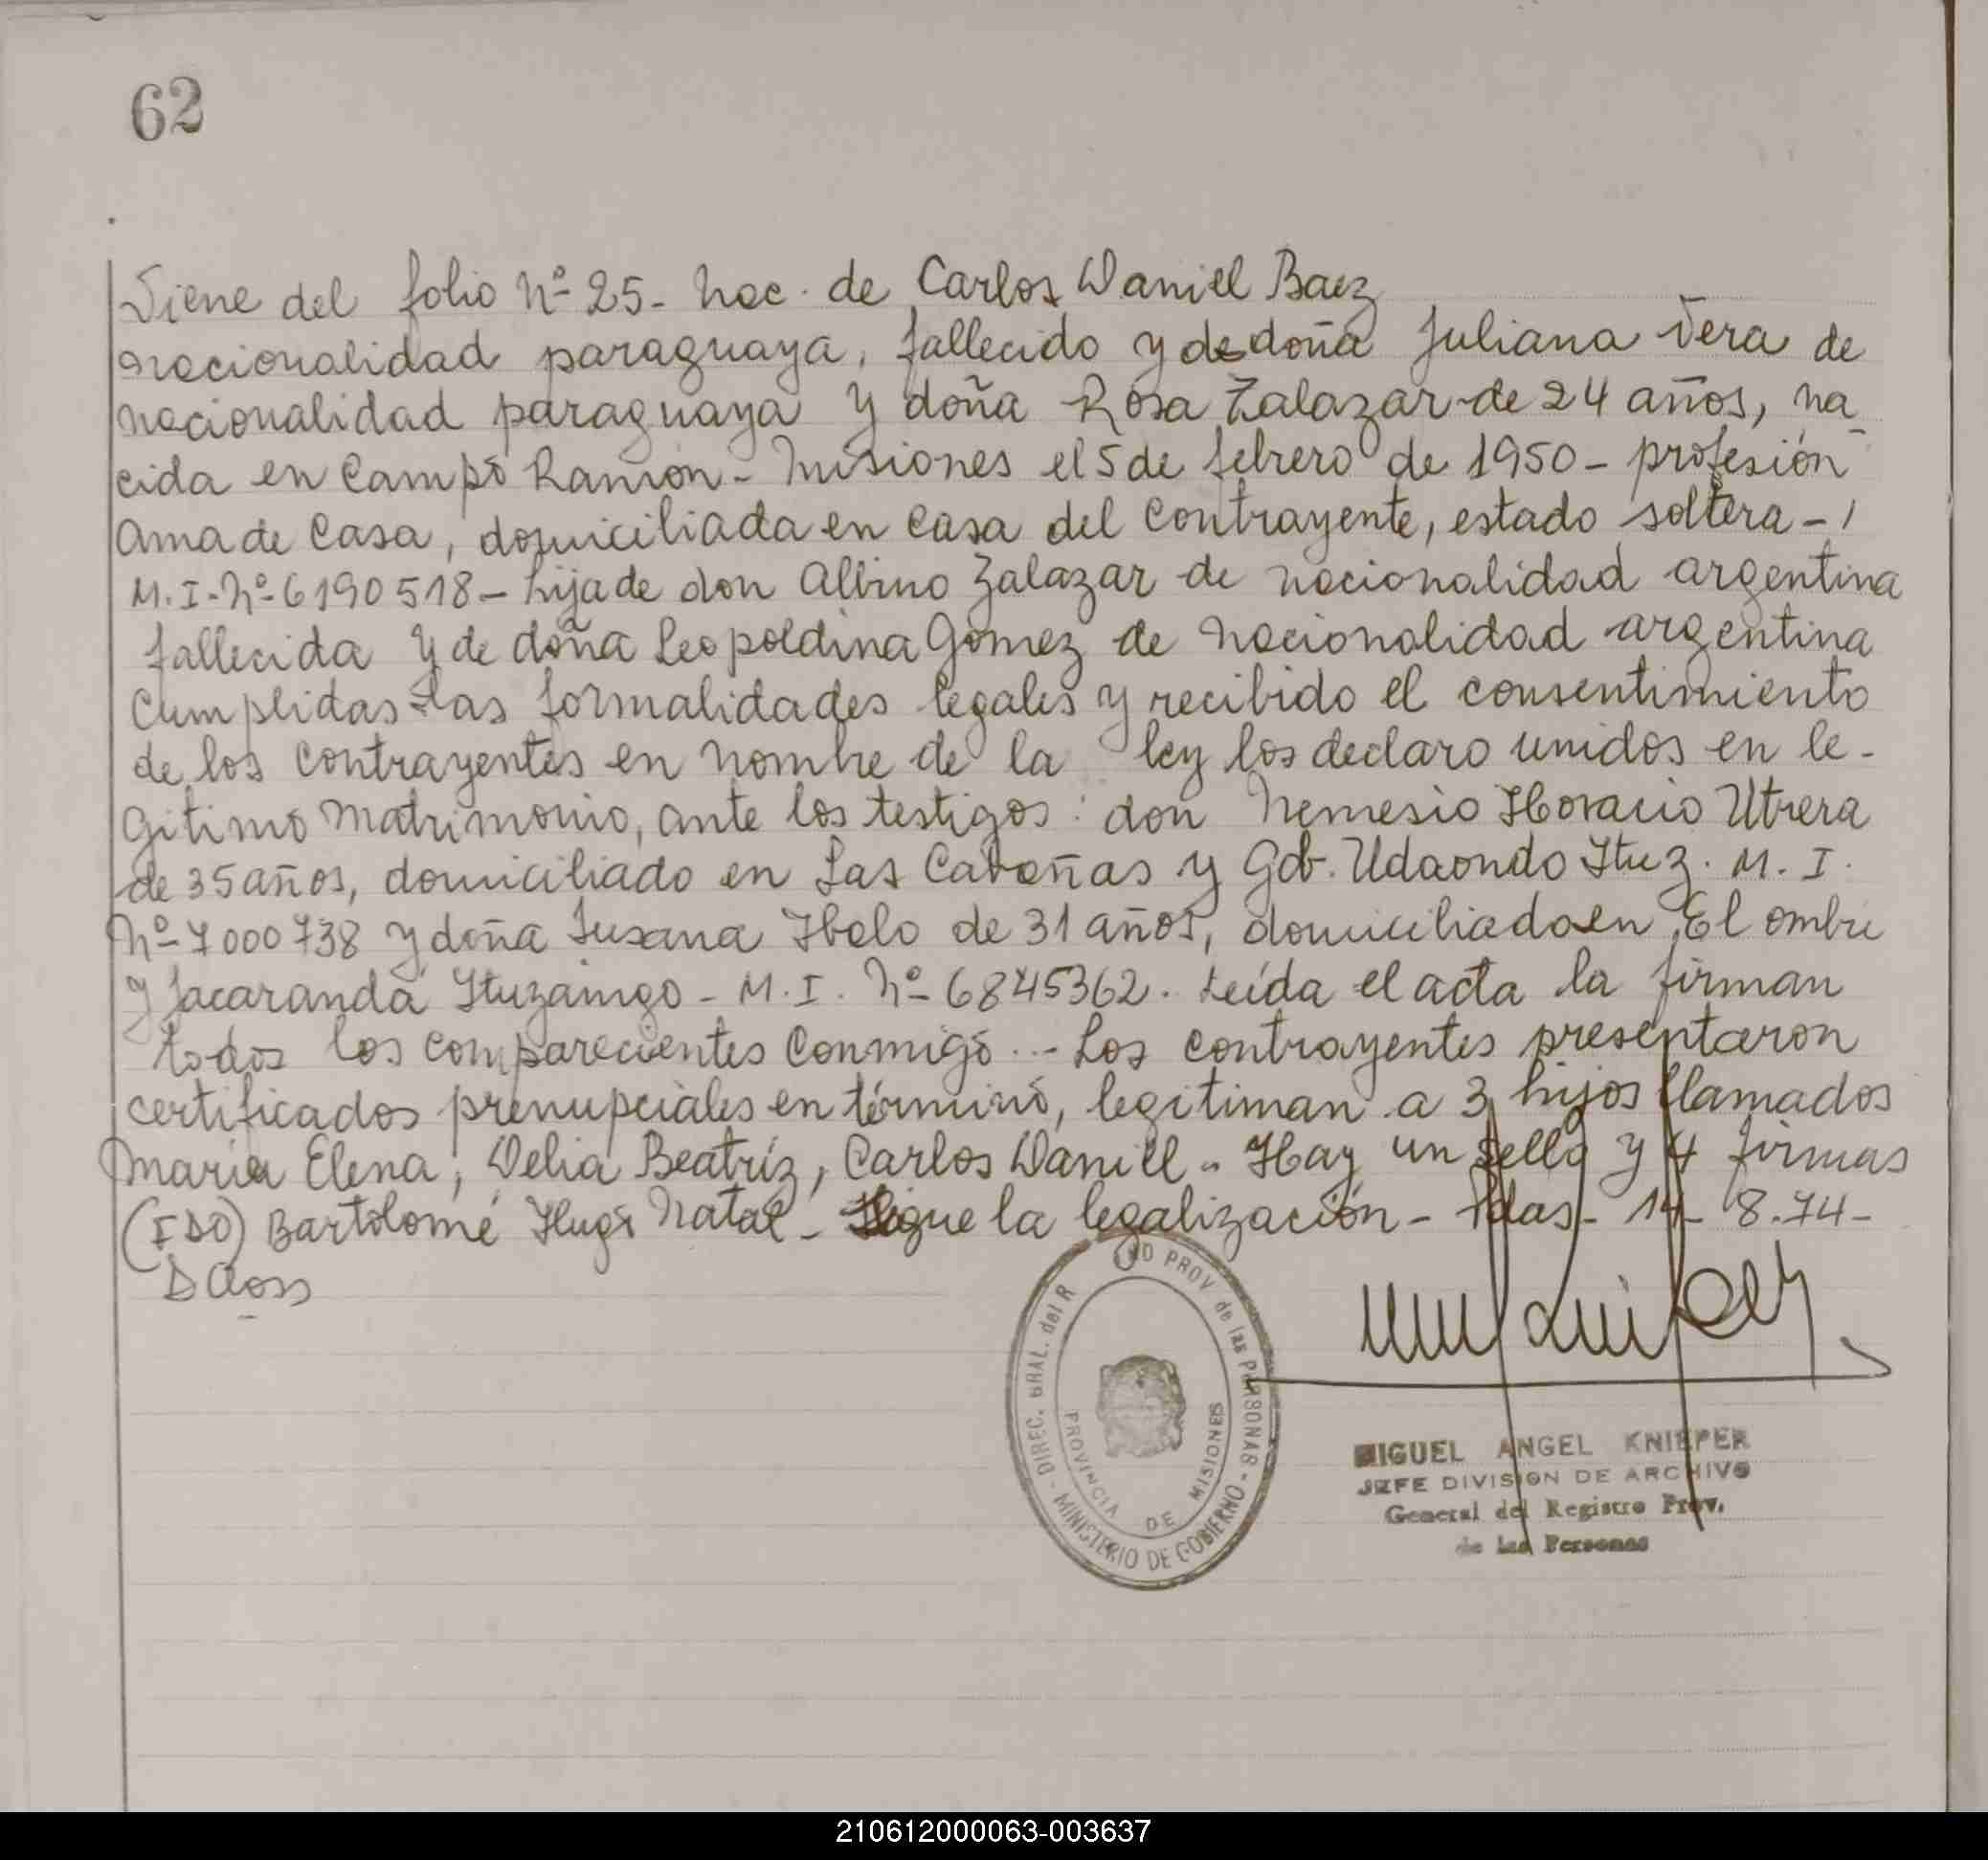 62
Viene del folio Nº 25 - Nac. de Carlos Daniel Baez
nacionalidad paraguaya, fallecido y de doña Juliana Vera de
nacionalidad paraguaya y doña Rosa Zalazar de 24 años, na
cida en Campo Ramón - Misiones el 5 de febrero de 1950 - profesión
Ama de Casa, domiciliada en Casa del Contrayente, estado soltera -
M.I. Nº 6190518 - hija de don Albino Zalazar de nacionalidad argentina
fallecida y de doña Leopoldina Gomez de nacionalidad argentina
Cumplidas las formalidades legales y recibido el consentimiento
de los Contrayentes en nombre de la ley los declaro unidos en le-
gitimo Matrimonio, ante los testigos: don Nemesio Horacio Utrera
de 35 años, domiciliado en Las Cabañas y Gdb. Udaondo Ituz. M. I.
Nº 7000738 y doña Susana de 31 años, domiciliada en El ombu
y Jacarandá Ituzaingo - M. I. Nº 6845362. Leída el acta la firman
todos los comparecientes Conmigo. - Los contrayentes presentaron
certificados prenupciales en término, legitiman a 3 hijos llamados
Maria Elena, Delia Beatríz, Carlos Daniel - Hay un sello y 4 firmas
(FDO) Bartolomé Hugo Natal - Sigue la legalización - Pdas - 14 - 8.74 -
DIREC. GRAL. del R PROV de las PERSONAS - MINISTERIO DE GOBIERNO -
PROVINCIA DE MISIONES
MIGUEL ANGEL KNIEPER
JEFE DIVISION DE ARCHIVO
General del Registro Prov.
de las Personas
210612000063-003637